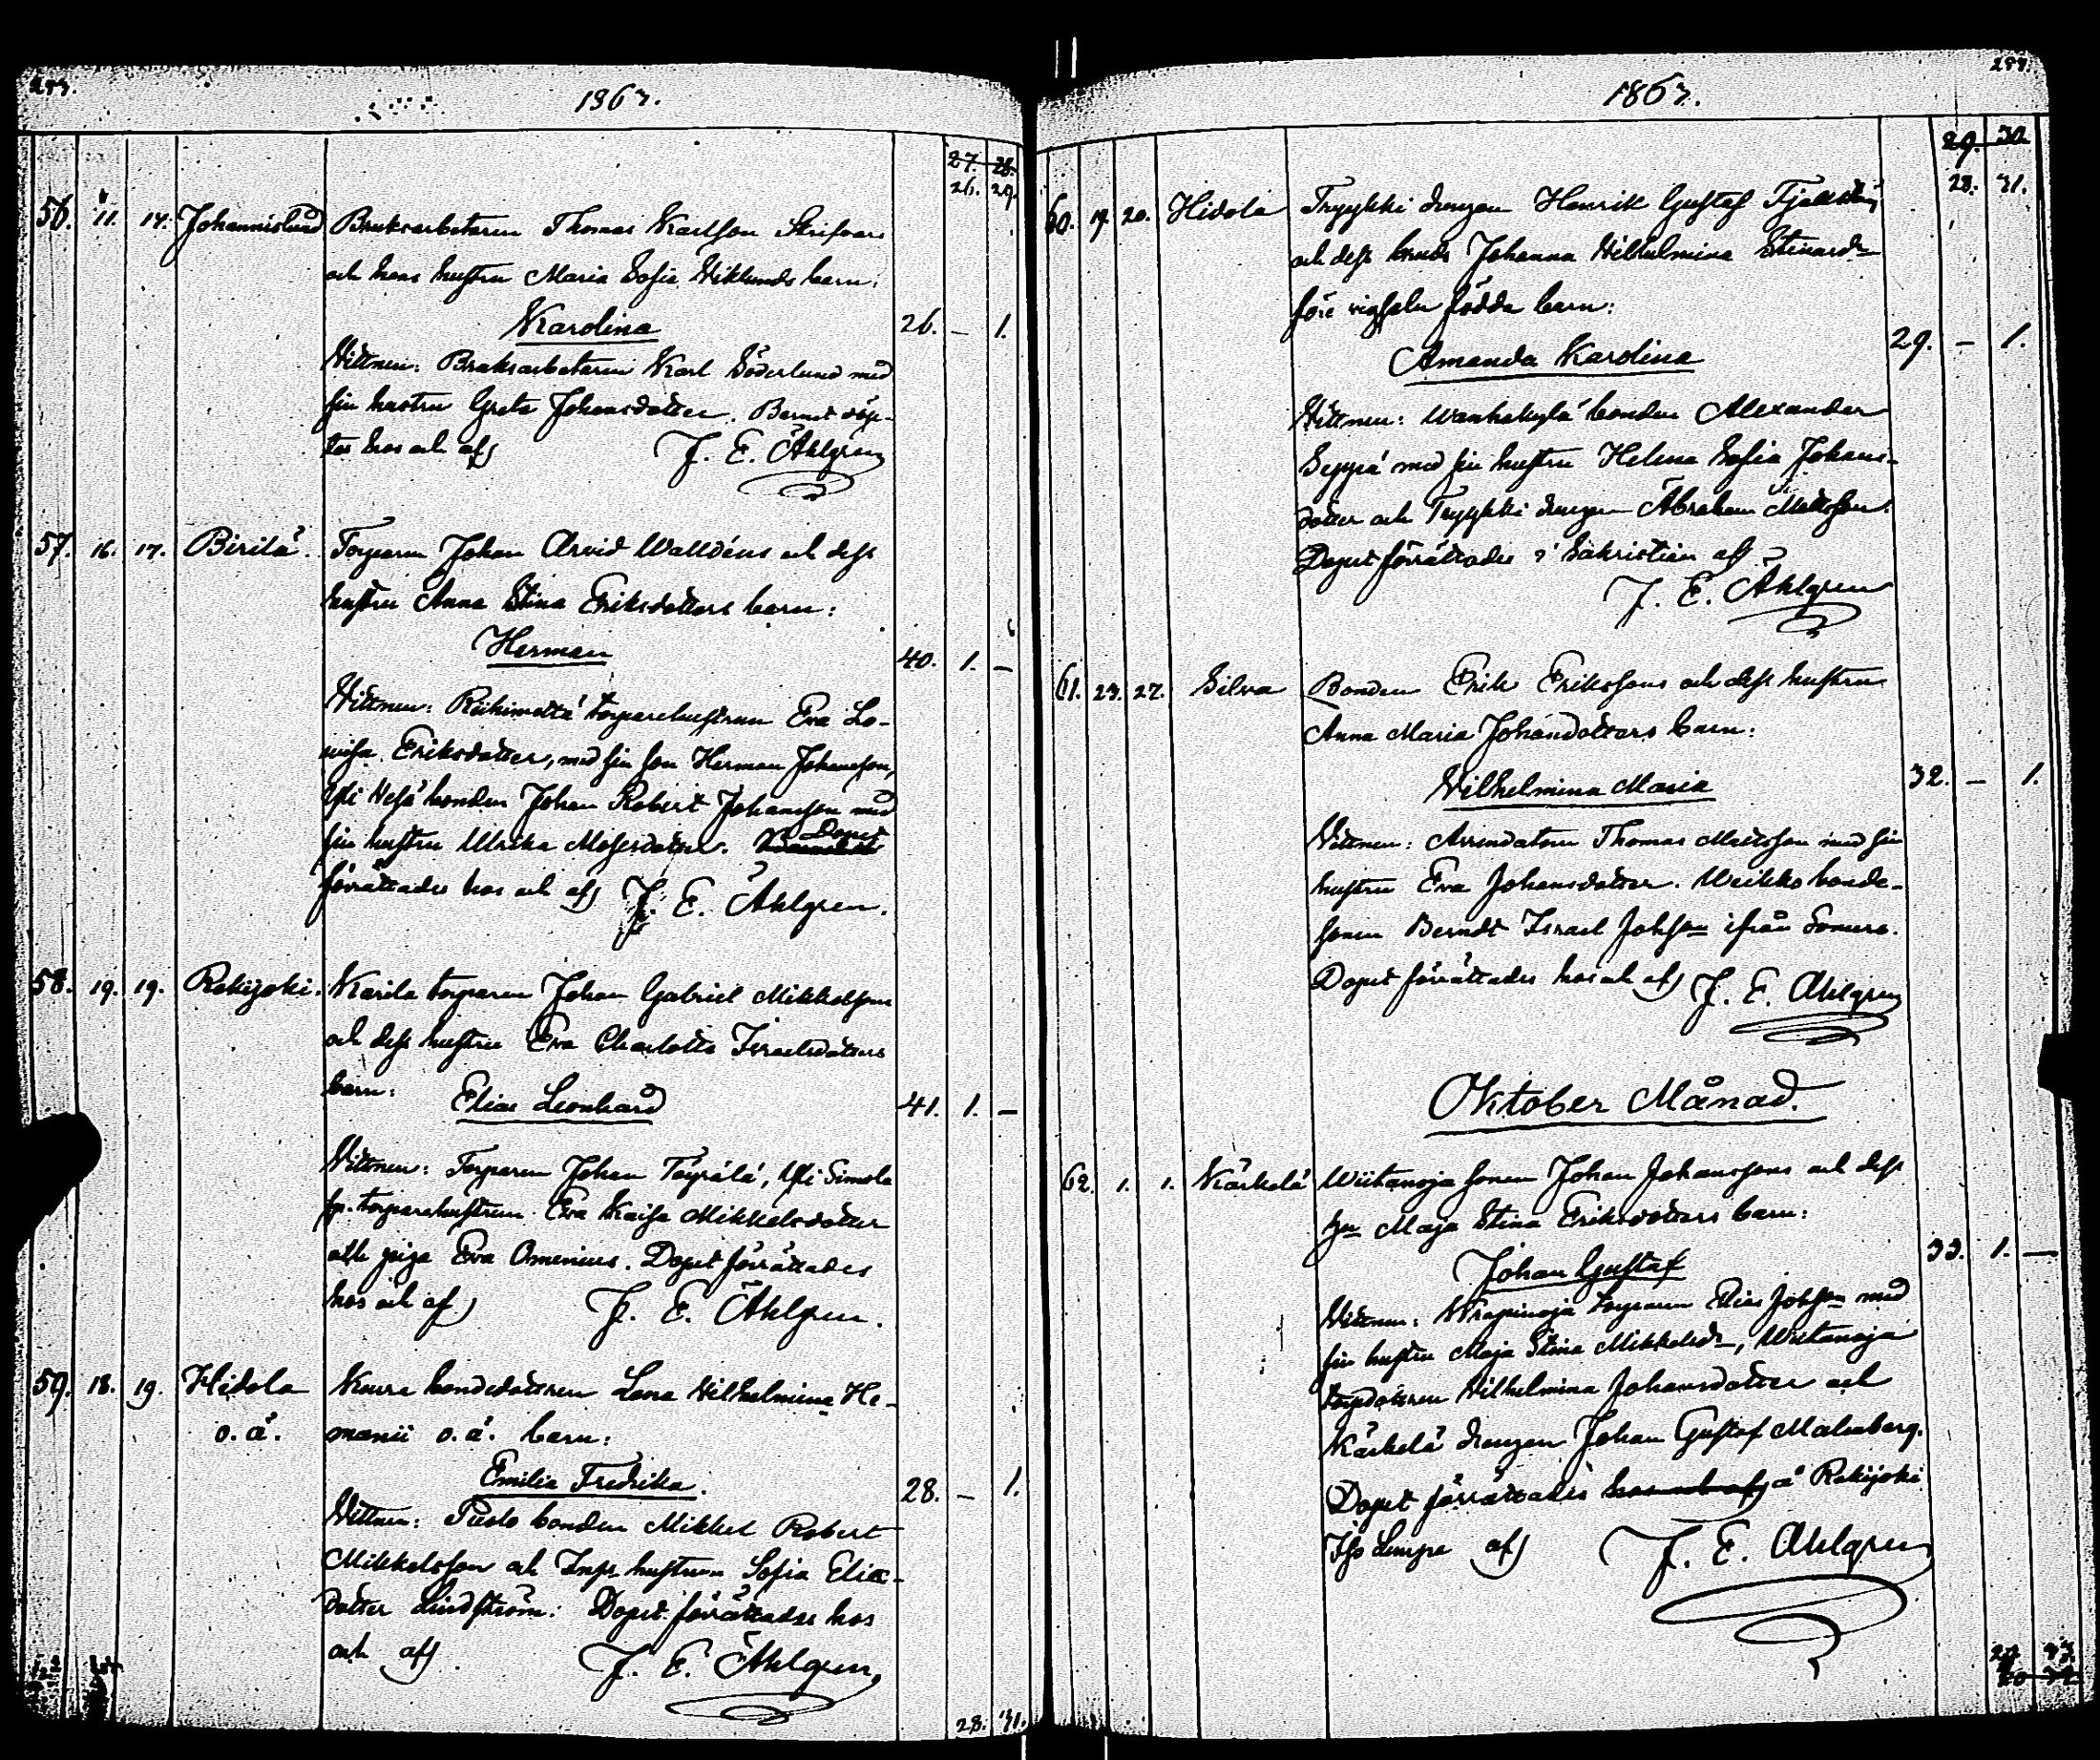 1863.
27. 28.
26. 29.
56. 11. 14. Johannislund Bruksarbetaren Thomas Karlsson Skrifvars
och hans hustru Maria Sofia Wiklunds barn:
Karolina 26. – 1.
Vittnen: Bruksarbetaren Karl Söderlund med
sin hustru Greta Johansdotter. Barnet döp-
tes hos och af J. E. Åhlgren
57. 16. 17. Pirilä. Torparen Johan Arvid Walldéns och dess
hustru Anna Stina Eriksdotters barn:
Herman 40. 1. –
Vittnen: Riihimettä torparehustrun Eva Lo-
visa Eriksdotter, med sin son Herman Johansson,
Yli Wesä bonden Johan Robert Johansson med
sin hustru Ulrika Mosesdotter. Dopet
förrättades hos och af J. E. Åhlgren.
58. 19. 19. Rekijoki. Karila torparen Johan Gabriel Mikkelssons
och dess hustru Eva Charlotta Israelsdotters
barn: Elias Leonhard 41. 1. –
Vittnen: Torparen Johan Töyrälä, Yli Simola
sp. torparehustrun Eva Kaisa Mikkelsdotter
och piga Eva Omenius. Dopet förrättades
hos och af J. E. Åhlgren.
59. 18. 19. Hidola Knura bondedottren Lena Wilhelmina He-
o. ä. manii o. ä. barn:
Emilia Fredrika. 28. – 1.
Vittnen: Pusto bonden Mikkel Robert
Mikkelsson och Insp. hustrun Sofia Elia-
dotter Lindström. Dopet förrättades hos
och af J. E. Åhlgren
28. 31.
1863.
29. 30.
28. 31.
60. 19. 20. Hidola Tryykki drengen Henrik Gustaf
och dess bruds Johanna Wilhelmina
före vigseln födda barn:
Amanda Karolina 29. – 1.
Vittnen: Wanhakylä bonden Alexander
Seppä med sin hustru Helena Sofia Johans-
dotter och Tryykki drengen Abraham Mattsson.
Dopet förrättades i Sakristian af
J. E. Åhlgren
61. 23. 27. Silva Bonden Erik Erikssons och dess hustru
Anna Maria Johansdotters barn:
Wilhelmina Maria 32. – 1.
Vittnen: Arrendatorn Thomas Mattsson med sin
hustru Eva Johansdotter. Weikko bonde-
sonen Berndt Israel Johsson ifrån Somero.
Dopet förrättades hos och af J. E. Åhlgren
Oktober Månad.
62. 1. 1. Kärkelä Wiitanoja sonen Johan Johanssons och dess
hu Maja Stina Eriksdotters barn:
Johan Gustaf 33. 1. –
Vittnen: torparen Elias Johsson med
sin hustru Maja Stina Mikkelsdr, Wiitanoja
torpdottren Wilhelmina Johansdotter och
Kärkelä drengen Johan Gustaf Malmberg.
Dopet förrättades hos och af å Rekijoki
af J. E. Åhlgren